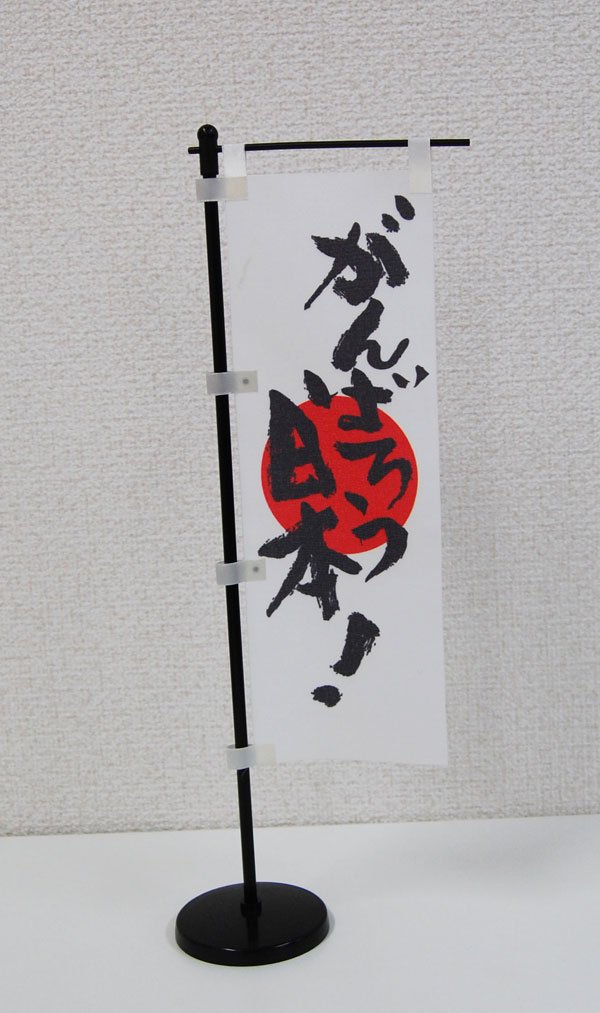 がんばろう
日本!